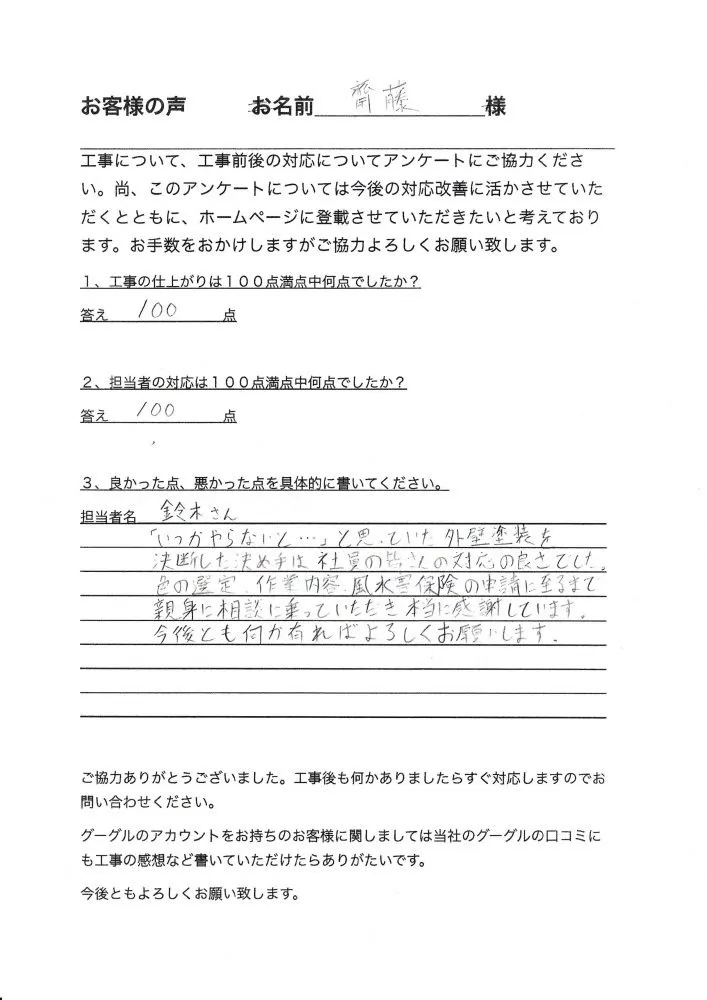 お客様の声 お名前 齋藤 様
工事について、工事前後の対応についてアンケートにご協力くださ
い。尚、このアンケートについては今後の対応改善に活かさせていた
だくとともに、ホームページに登載させていただきたいと考えており
ます。お手数をおかけしますがご協力よろしくお願い致します。
１、工事の仕上がりは１００点満点中何点でしたか？
答え 100 点
２、担当者の対応は１００点満点中何点でしたか？
答え 100 点
３、良かった点、悪かった点を具体的に書いてください。
担当者名 鈴木さん
「いつかやらないと…」と思っていた外壁塗装を
決断した決め手は社員の皆さんの対応の良さでした。
色の選定、作業内容、風水害保険の申請に至るまで
親身に相談に乗っていただき本当に感謝しています。
今後とも何か有ればよろしくお願いします。
ご協力ありがとうございました。工事後も何かありましたらすぐ対応しますのでお
問い合わせください。
グーグルのアカウントをお持ちのお客様に関しましては当社のグーグルの口コミに
も工事の感想など書いていただけたらありがたいです。
今後ともよろしくお願い致します。